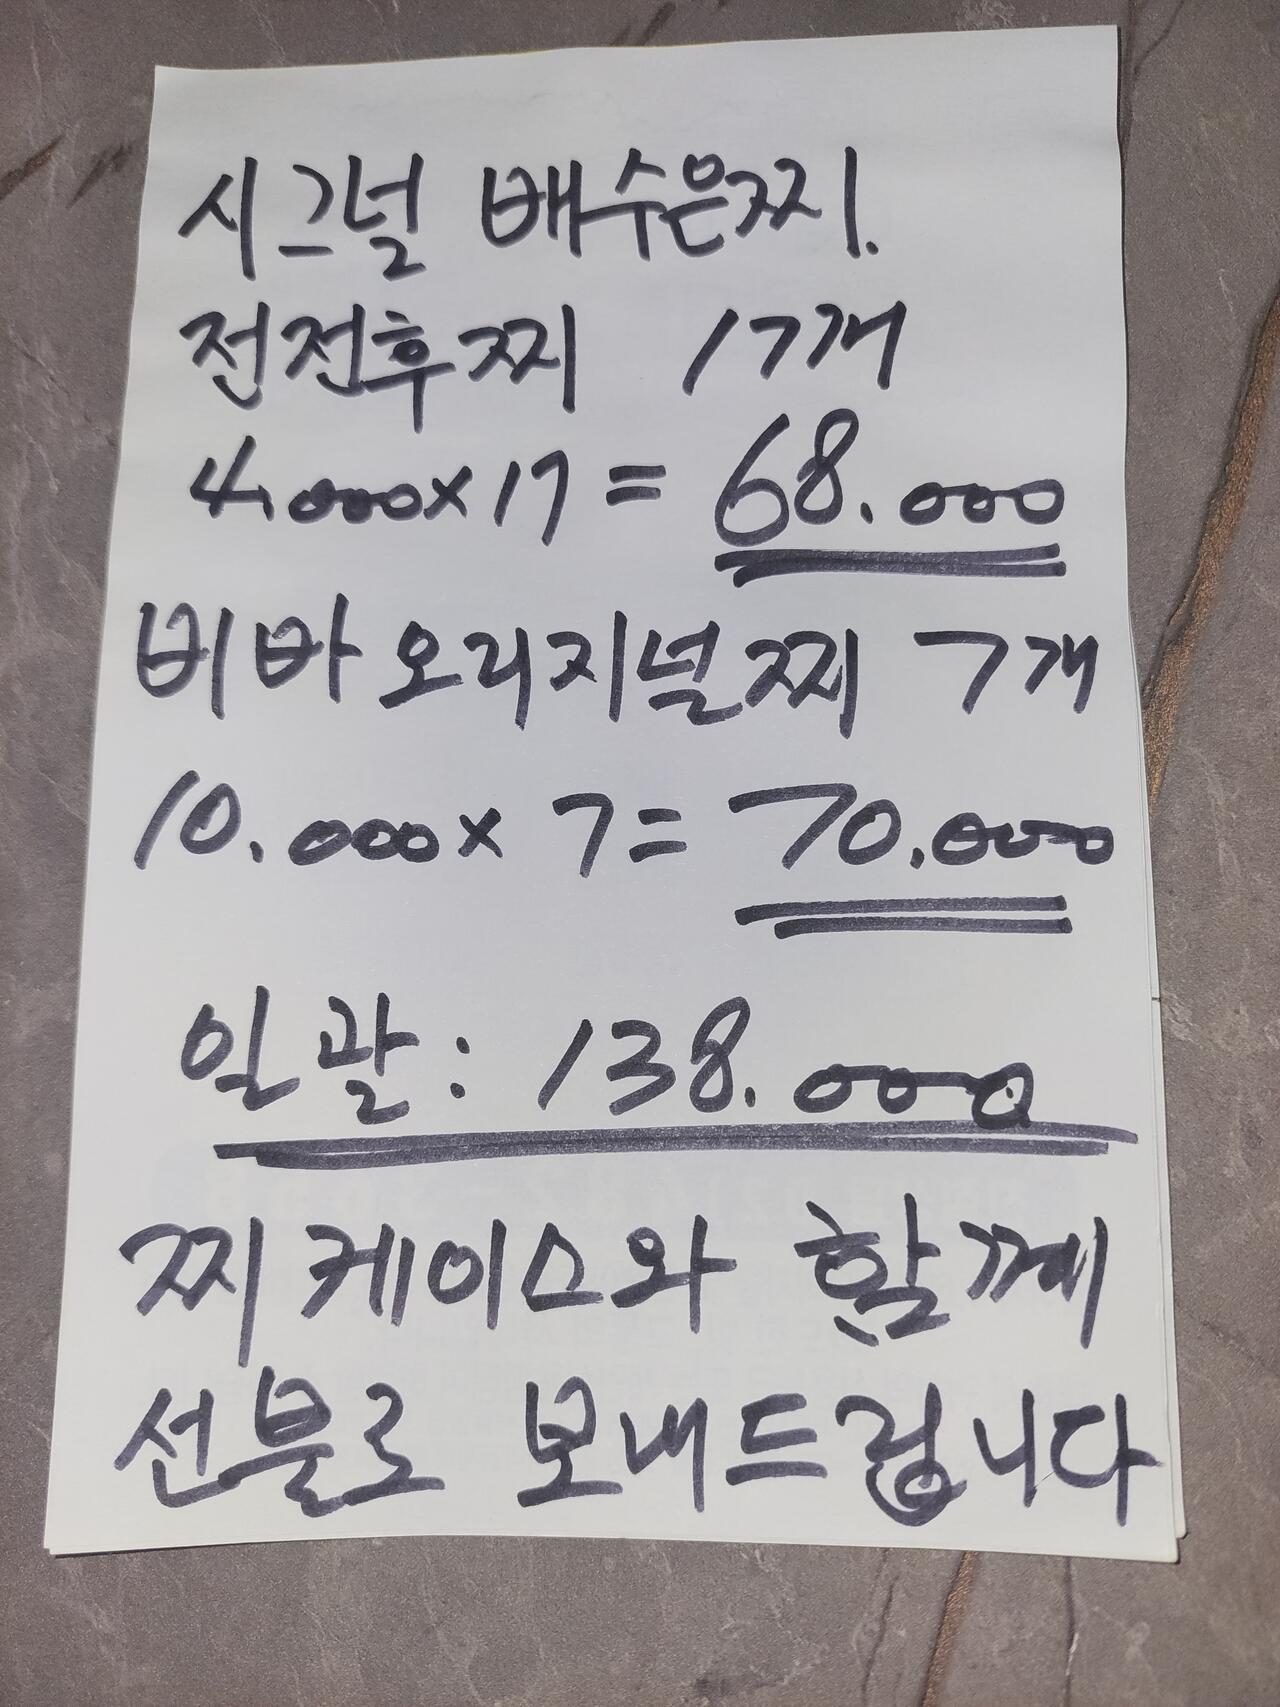 시그널 배수은찌.
전전후찌 17개
4.000×17 = 68.000
비바 오리지널찌 7개
10.000× 7= 70.000
일괄 : 138.000
찌케이스와 함께
선불로 보내드립니다